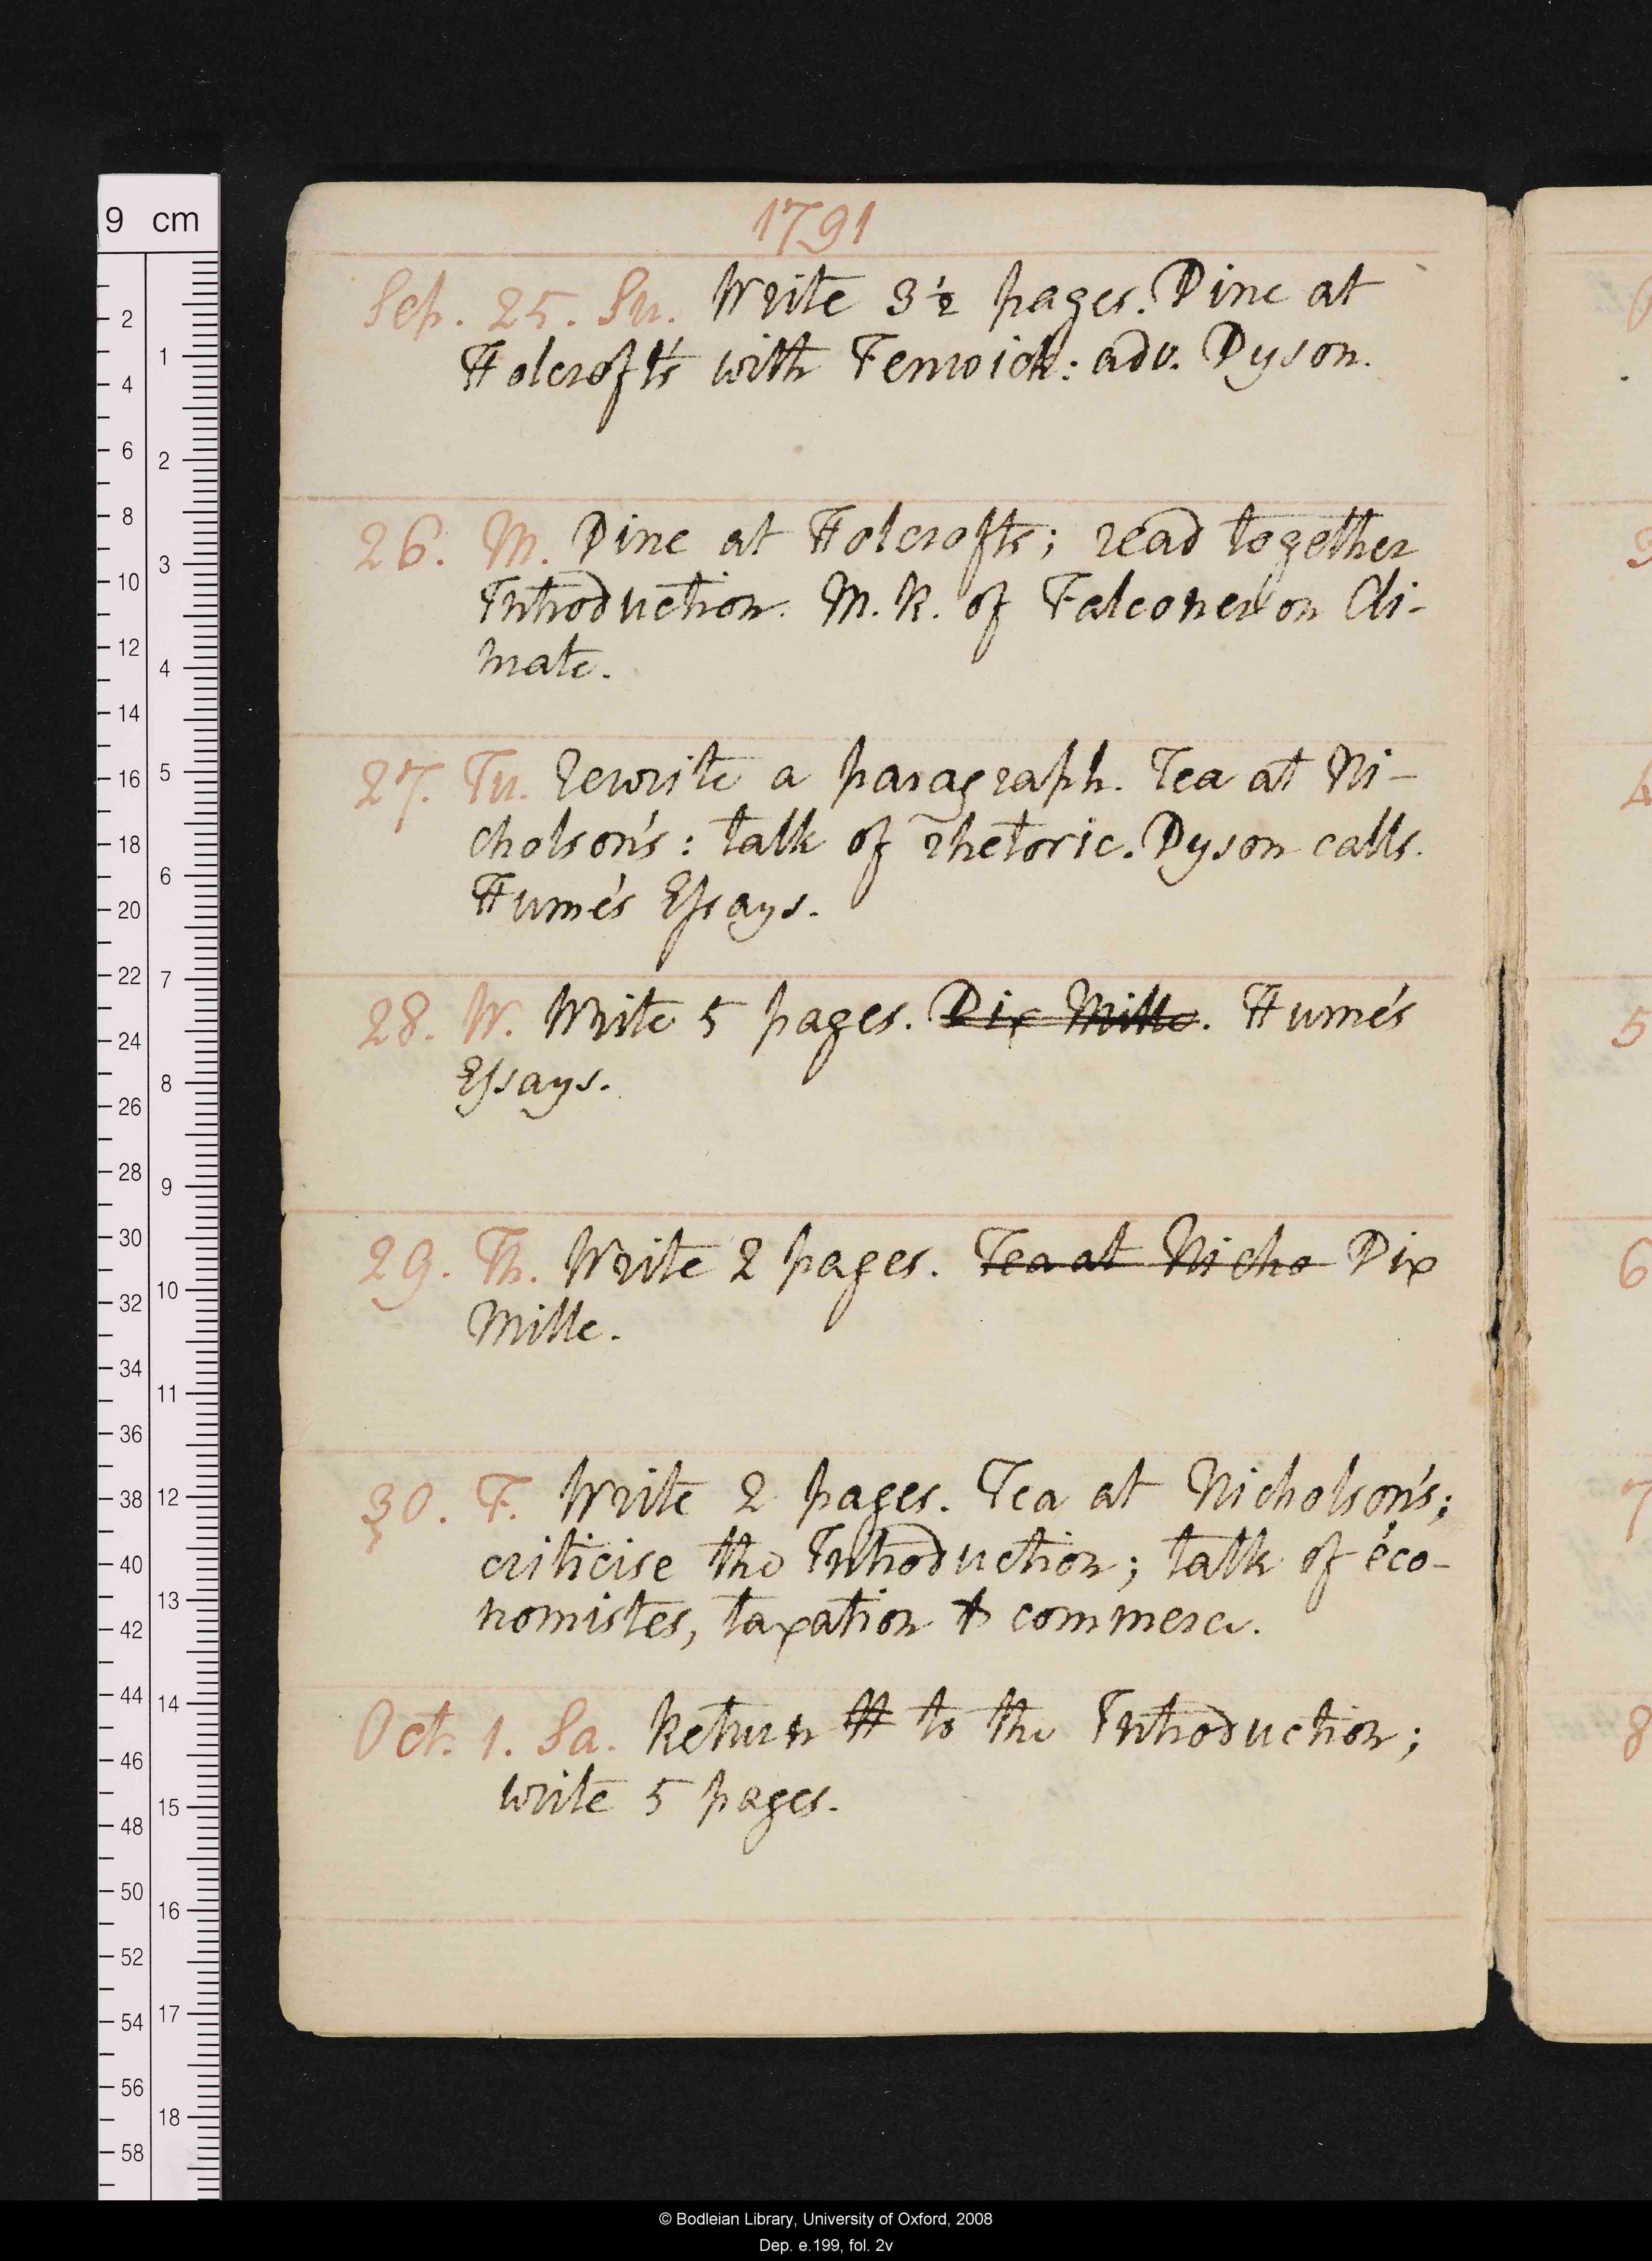 1791
Sep. 25. Su. Write 3½ pages. Dine at
Holcroft's with Fenwick: adv. Dyson.
26. M. Dine at Holcrofts; read together
Introduction. M.R. of Falconer on Cli-
mate.
27. Tu. Rewrite a paragraph. Tea at Ni-
cholson's: talk of rhetoric. Dyson calls.
Hume's Essays.
28. W. Write 5 pages. Dix Mille. Hume's
Essays.
29. Th. Write 2 pages. Tea at Nicho Dix
Mille.
30. F. Write 2 pages. Tea at Nicholson's;
criticise the Introduction; talk of éco-
nomistes, taxation & commerce.
Oct. 1. Sa. Return to the Introduction;
write 5 pages.
9 cm
2
4
6
8
10
12
14
16
18
20
22
24
26
28
30
32
34
36
38
40
42
44
46
48
50
52
54
56
58
1
2
3
4
5
6
7
8
9
10
11
12
13
14
15
16
17
18
5
6
7
8
© Bodleian Library, University of Oxford, 2008
Dep. e.199, fol. 2v